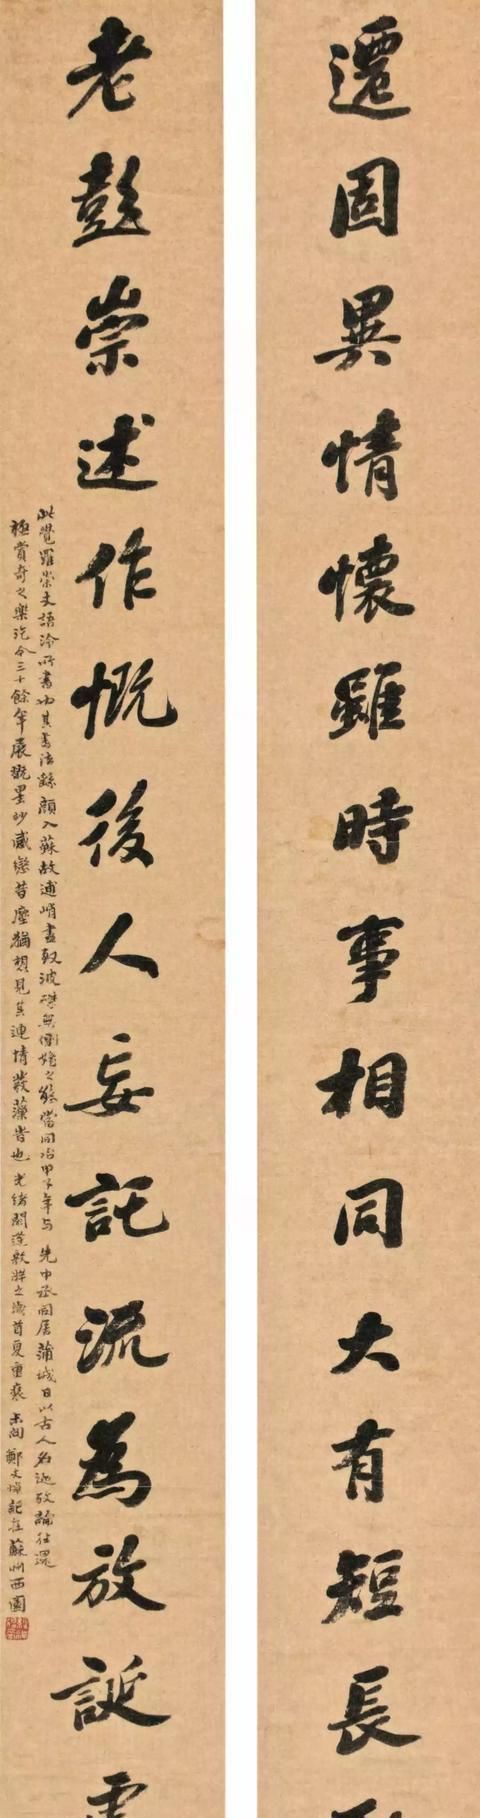 遷固異情懷雖時事相同大有短長
老彭崇述作慨後人妄託流為放誕
此覺羅崇文語泠所書也其書法繇顏入蘇故逋峭盡致波磔無側媚之態當同治甲子年与先中丞同居蒲城日以古人名迹攷論往還
極賞奇之樂迄今三十餘年展玩墨妙感戀昔塵猶想見其連情發藻昔也光緒閼逢敦牂之歲首夏重裝未問鄭文焯記在蘇州西園